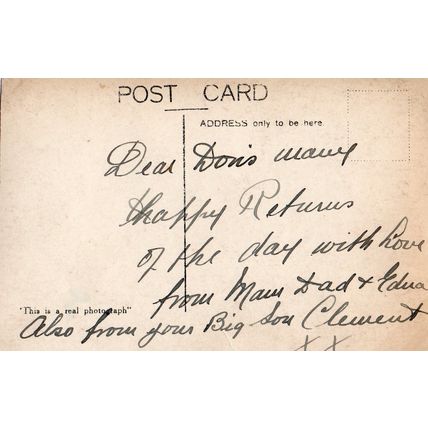 POST CARD
ADDRESS only to be here.
Dear Doris many
Happy Returns
of the day with Love
from Mam Dad & Edna
"This is a real photograph"
Also from your Big Son Clement
X X